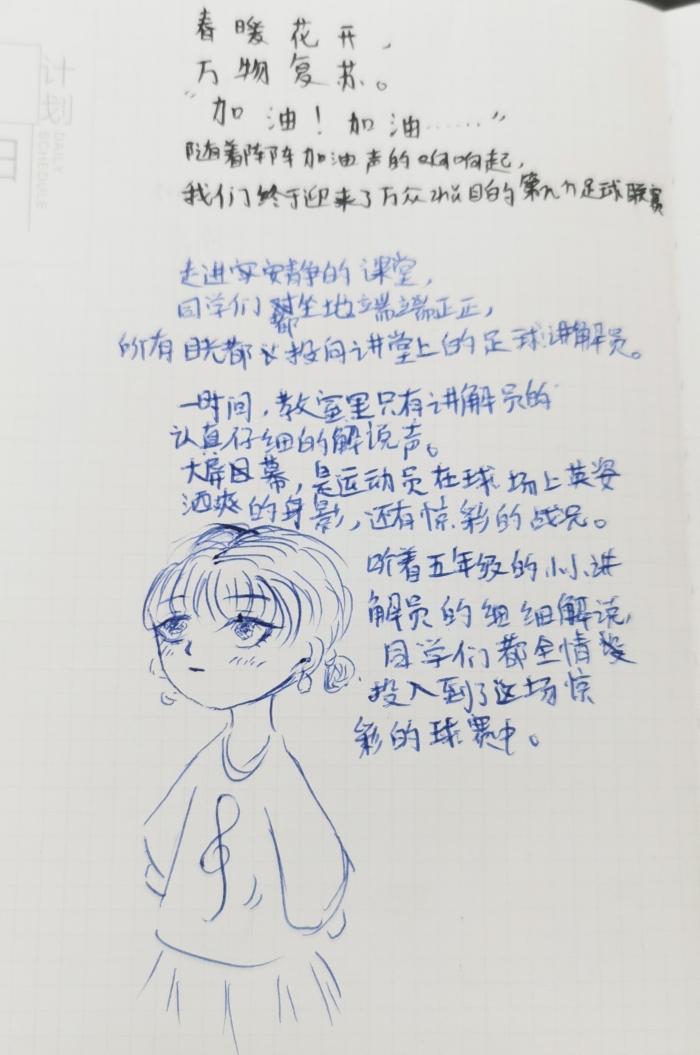 春暖花开，
万物复苏。
“加油！加油……”
随着阵阵加油声的响起，
我们终于迎来了万众瞩目的第九个足球联赛
走进安静的课堂，
同学们都坐地端端正正，
所有目光都投向讲堂上的足球讲解员。
一时间，教室里只有讲解员的
认真仔细的解说声。
大屏幕，是运动员在球场上英姿
洒爽的身影，还有惊彩的战况。
听着五年级的小小讲
解员的细细解说，
同学们都全情投
投入到了这场惊
彩的球赛中。
计划
DAILY
SCHEDULE
日